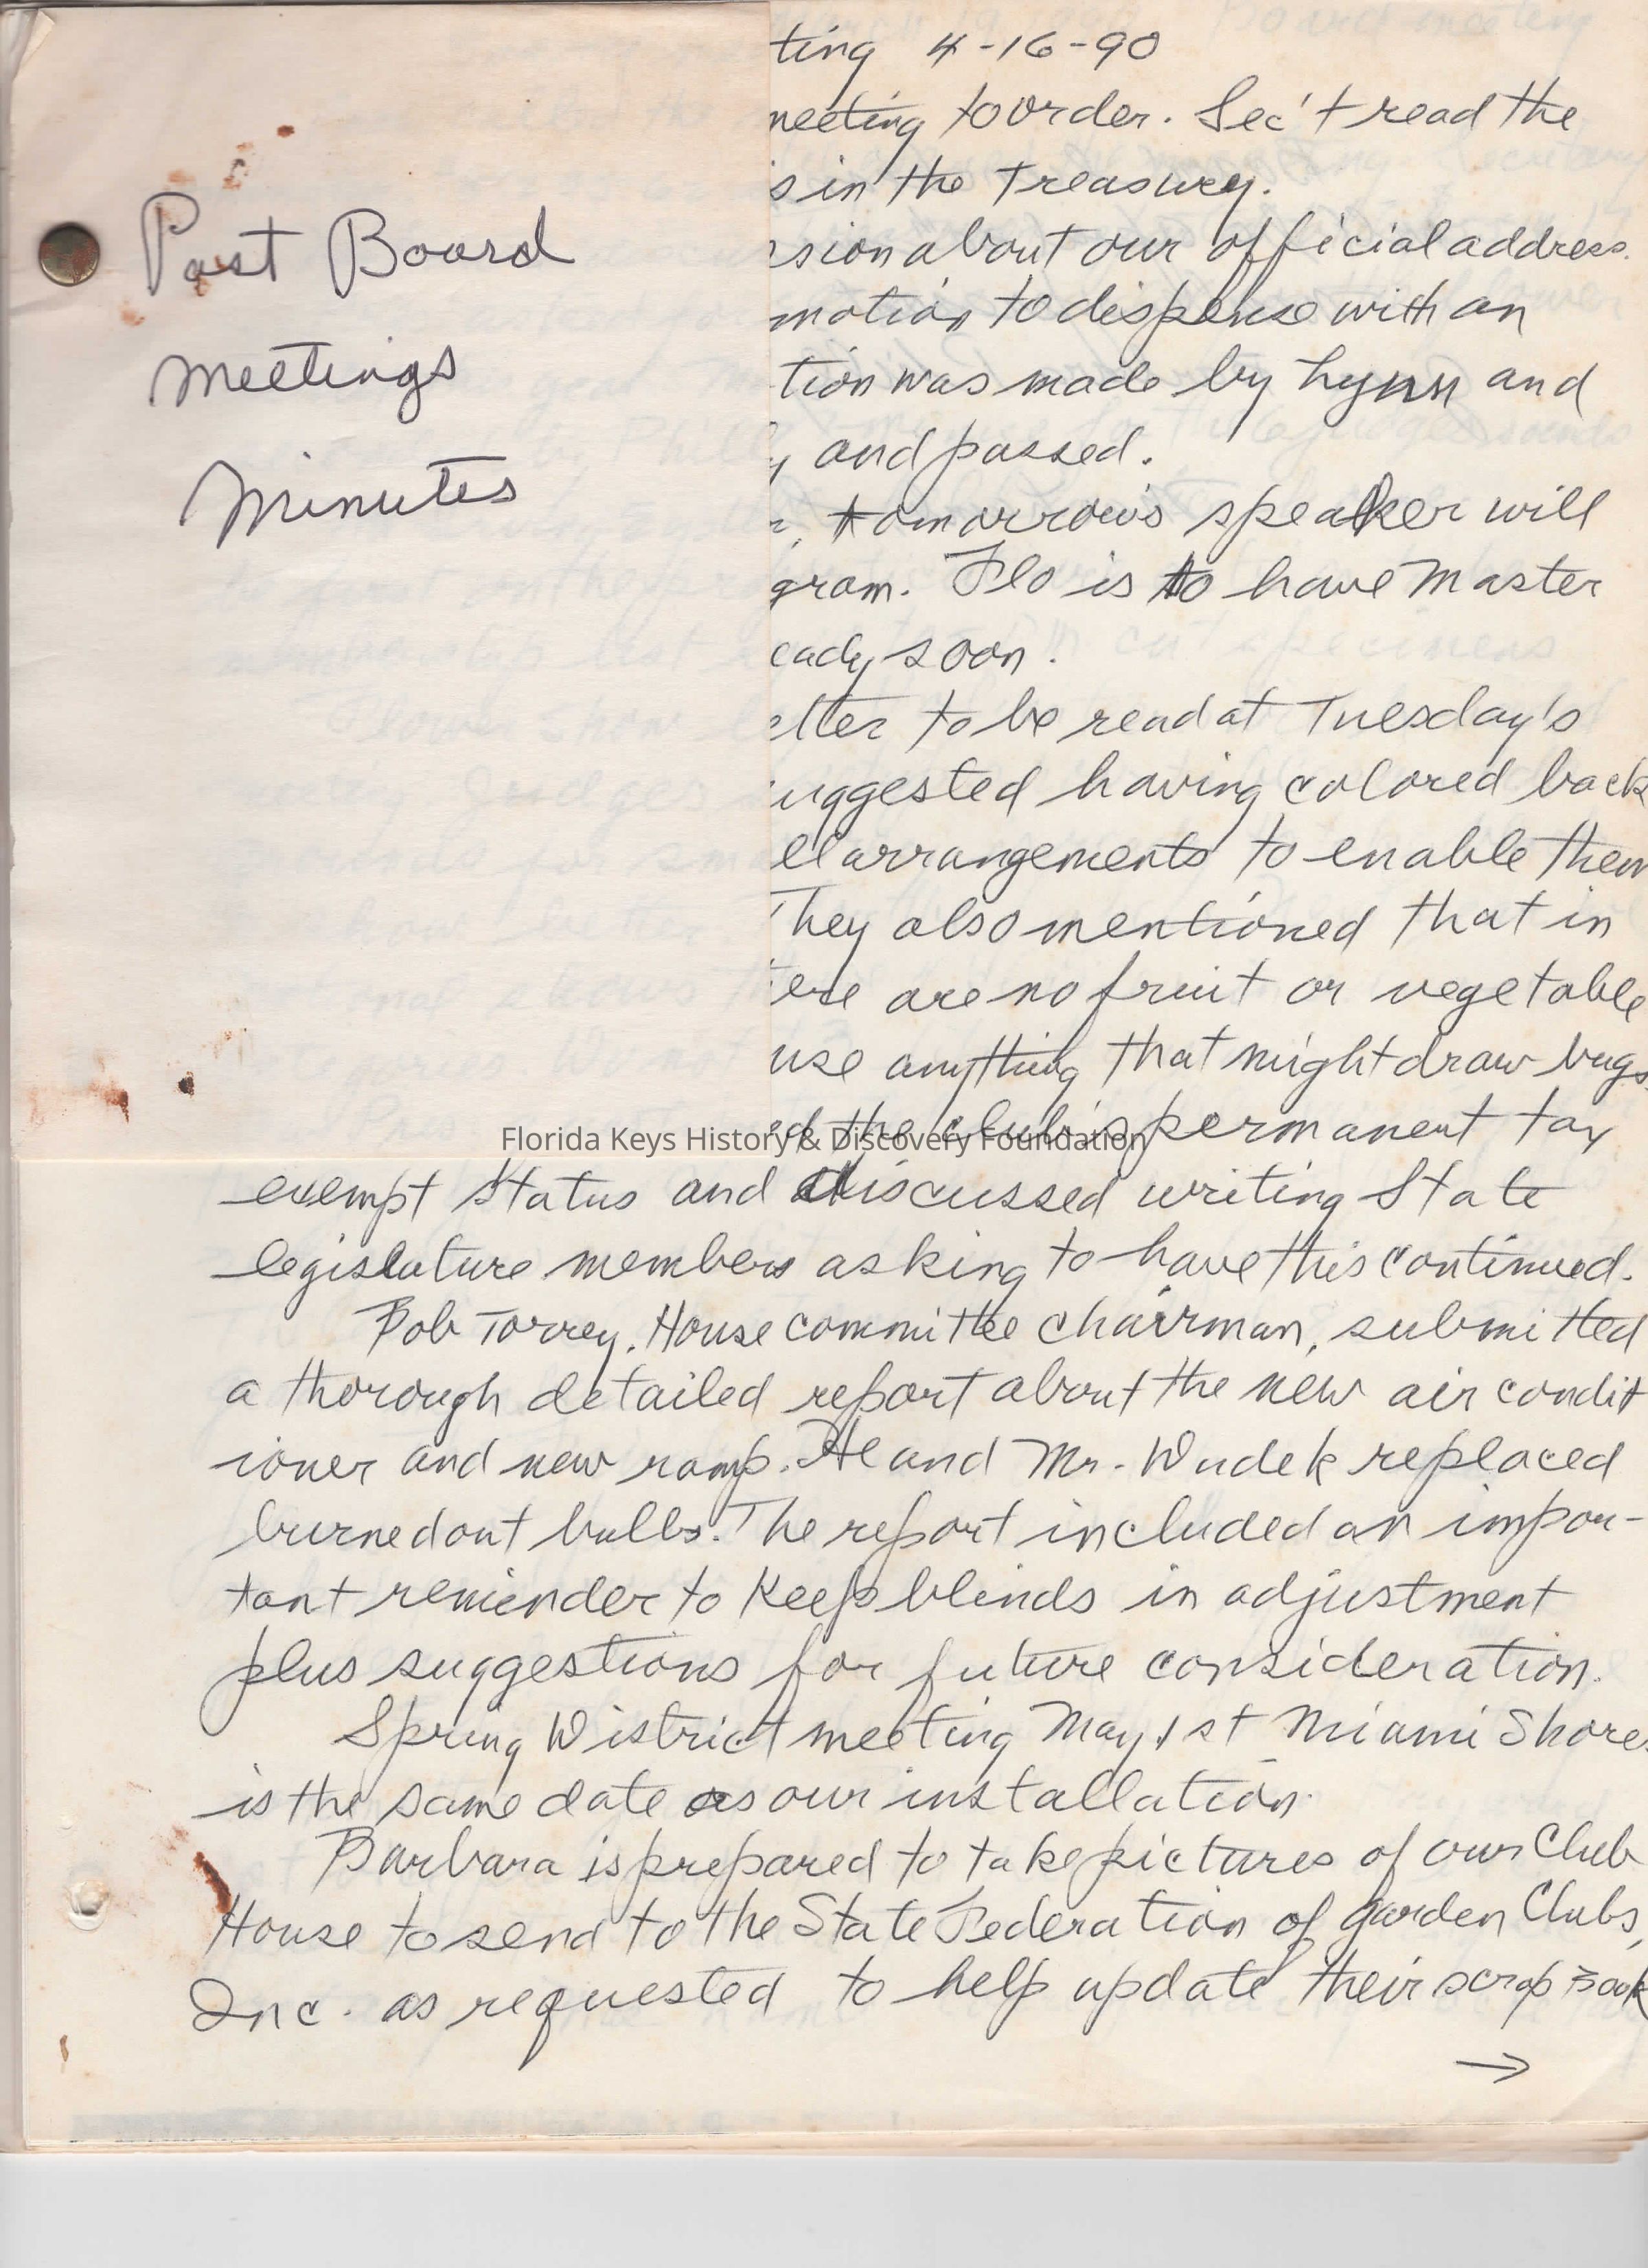 Past Board
Meetings
Minutes
ting 4-16-90
neeting to order. Sec't read the
s in the treasury.
sion about our official address.
motion to dispense with an
tion was made by Lynn and
y and passed.
tomorrow's speaker will
gram. Flo is to have Master
eady soon.
etter to be read at Tuesday's
uggested having colored back
ll arrangements to enable them
They also mentioned that in
ere are no fruit or vegetable
use anything that might draw bugs.
ed the club's permanent tax
Florida Keys History & Discovery Foundation
exempt status and discussed writing State
legislature members asking to have this continued.
Bob Torrey, House committee chairman, submitted
a thorough detailed report about the new air condit
ioner and new ramp. He and Mr. Wudek replaced
burned out bulbs. The report included an impor-
tant reminder to keep blinds in adjustment
plus suggestions for future consideration.
Spring District meeting May 1st Miami Shores
is the same date as our installation.
Barbara is prepared to take pictures of our Club
House to send to the State Federation of Garden Clubs,
Inc. as requested to help update their scrap book
→